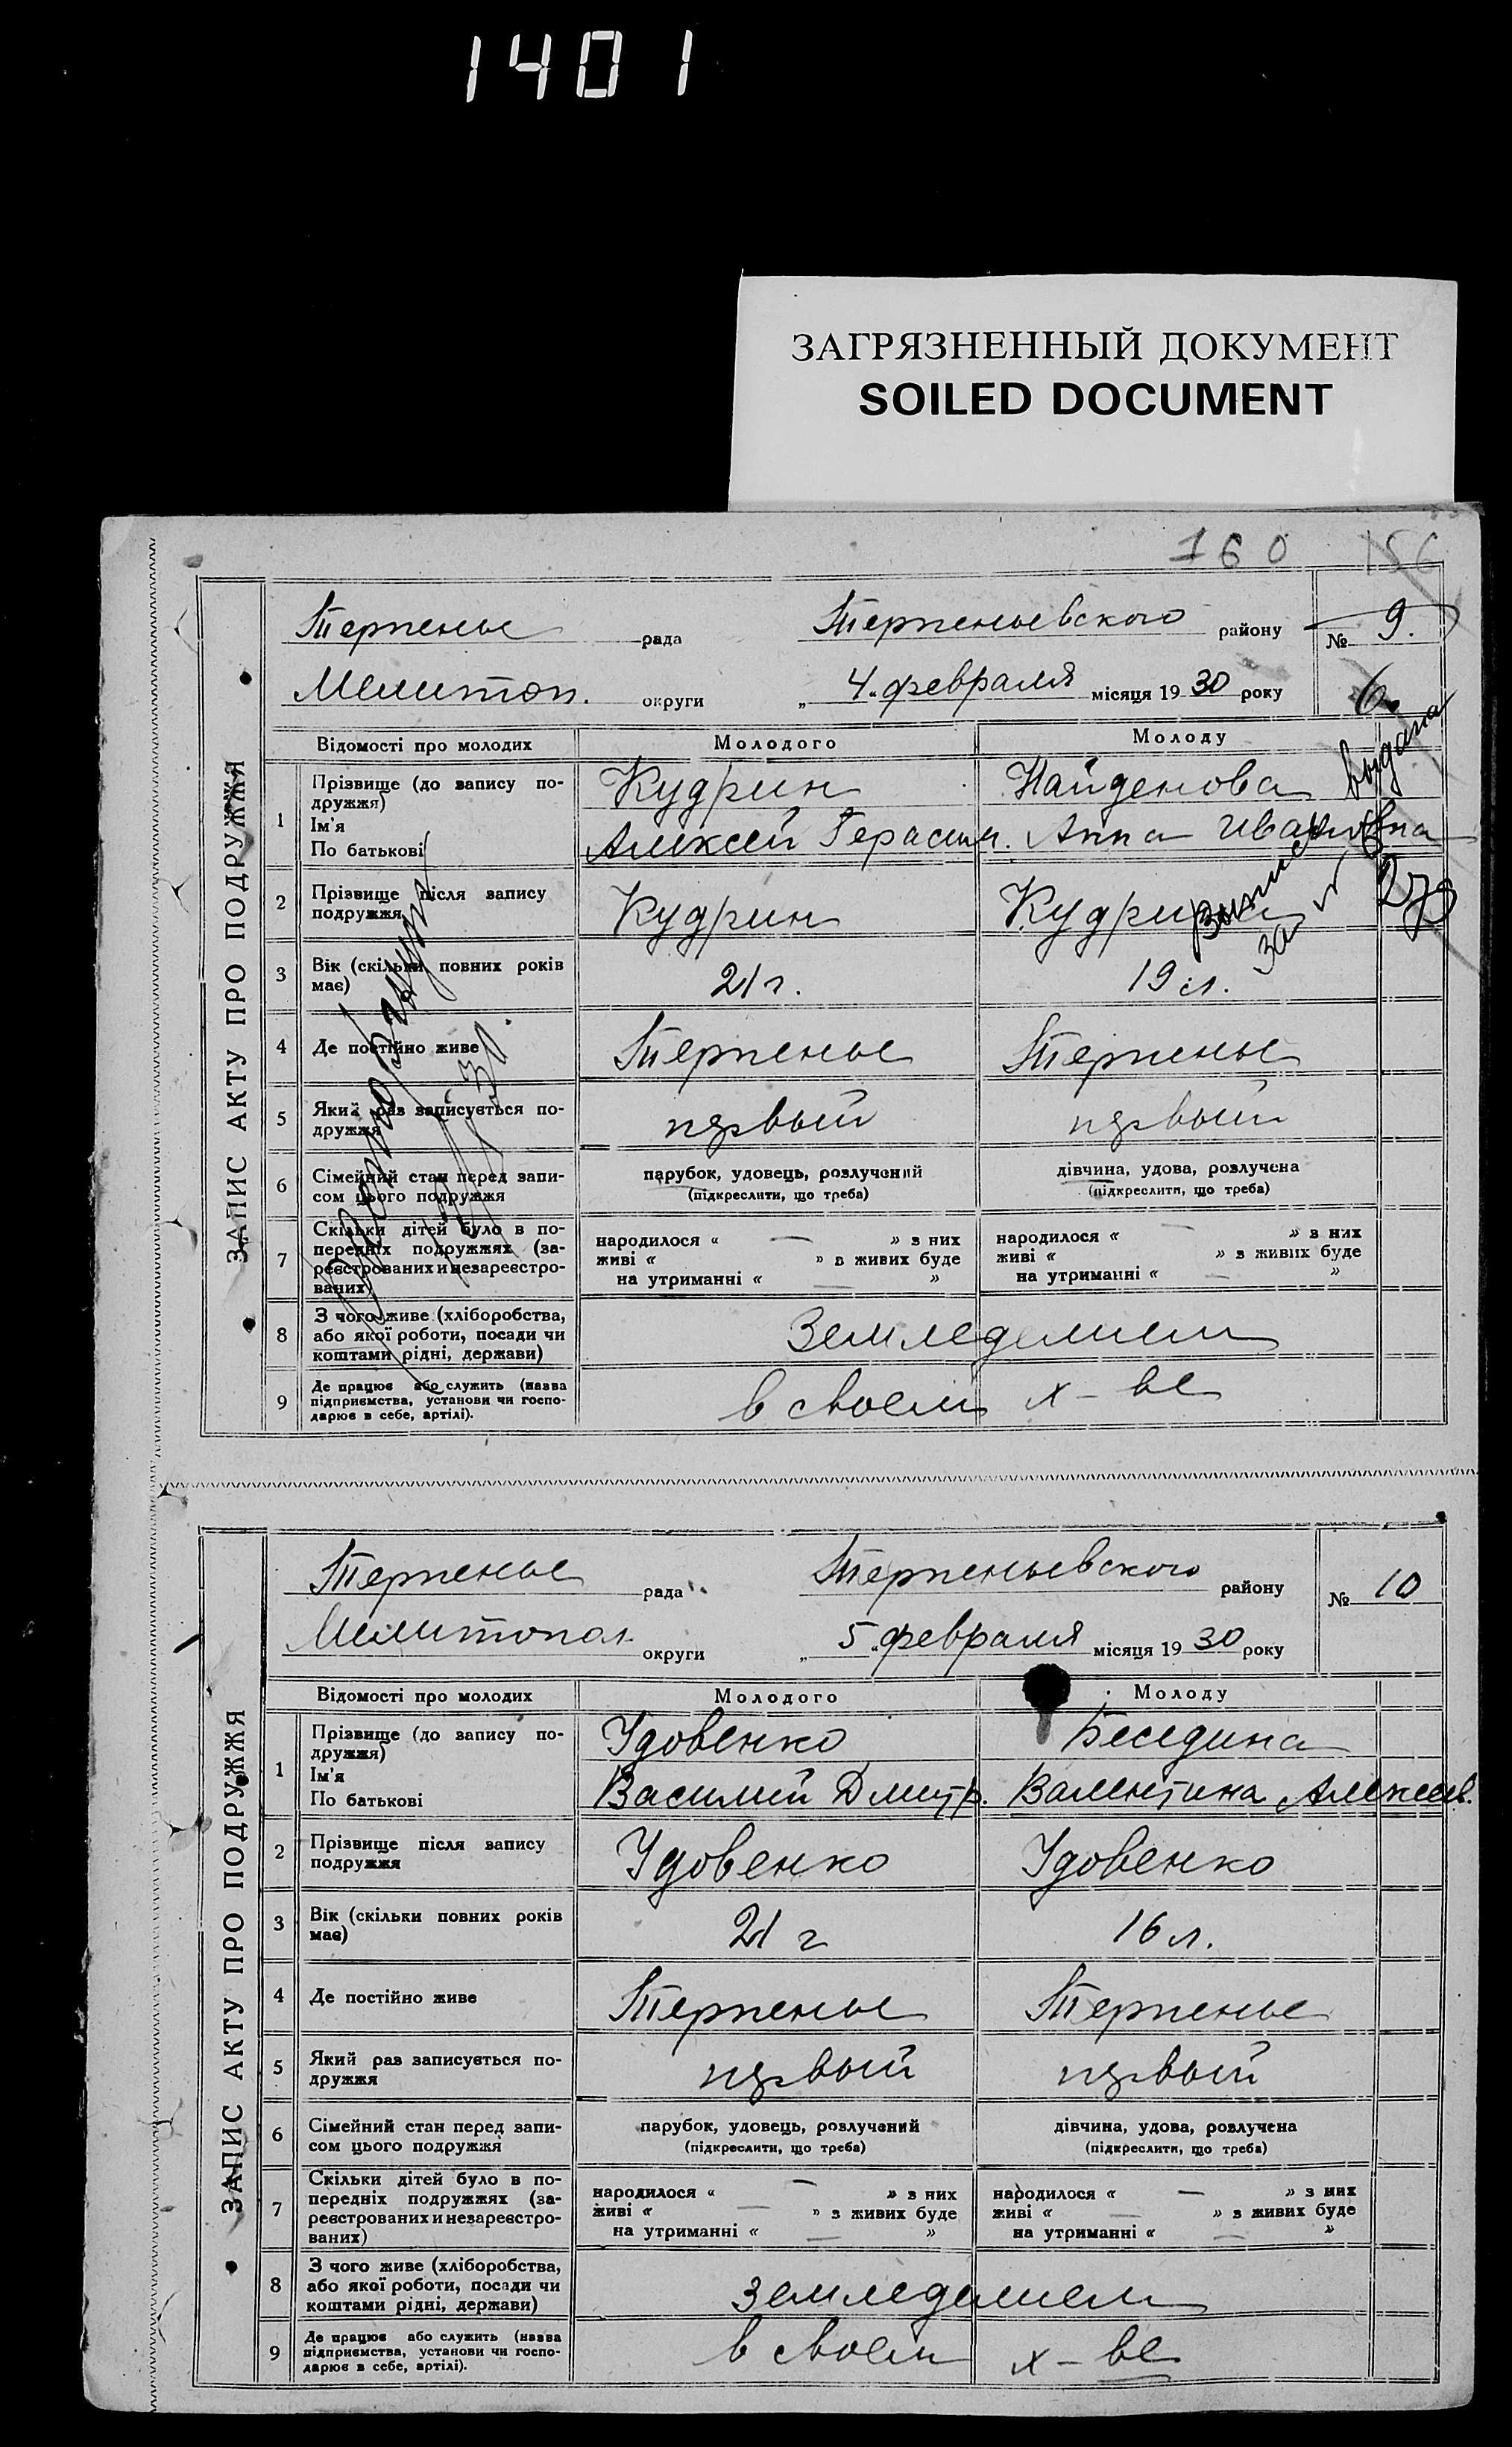 1401
ЗАГРЯЗНЕННЫЙ ДОКУМЕНТ
SOILED DOCUMENT
160 156
ЗАПИС АКТУ ПРО ПОДРУЖЖЯ
Терпенье рада Терпеньевского району № 9.
Мелитоп. округи „ 4 " февраля місяця 19 30 року 6
Відомості про молодих Молодого Молоду
1 Прізвище (до запису по-
дружжя) Кудрин Найденова
Ім'я
По батькові Алексей Герасим. Анна Ивановна
выдана
за № 279
2 Прізвище після запису
подружжя Кудрин Кудрина
3 Вік (скільки повних років
має) 21 г. 19 л.
4 Де постійно живе Терпенье Терпенье
5 Який раз записується по-
дружжя первый первый
6 Сімейний стан перед запи-
сом цього подружжя
парубок, удовець, розлучений дівчина, удова, розлучена
(підкреслити, що треба) (підкреслити, що треба)
7 Скільки дітей було в по-
передніх подружжях (за-
реєстрованих и незареєстро-
ваних)
народилося « — » з них народилося « — » з них
живі « » з живих буде живі « » з живих буде
на утриманні « — » на утриманні « — »
8 З чого живе (хліборобства,
або якої роботи, посади чи
коштами рідні, держави) Земледелием
9 Де працює або служить (назва
підприємства, установи чи госпо-
дарює в себе, артілі). в своем х-ве
ЗАПИС АКТУ ПРО ПОДРУЖЖЯ
Терпенье рада Терпеньевского району № 10
Мелитопол. округи „ 5 " февраля місяця 19 30 року
Відомості про молодих Молодого Молоду
1 Прізвище (до запису по-
дружжя) Удовенко Беседина
Ім'я
По батькові Василий Дмитр. Валентина Алексеев.
2 Прізвище після запису
подружжя Удовенко Удовенко
3 Вік (скільки повних років
має) 21 г 16 л.
4 Де постійно живе Терпенье Терпенье
5 Який раз записується по-
дружжя первый первый
6 Сімейний стан перед запи-
сом цього подружжя
парубок, удовець, розлучений дівчина, удова, розлучена
(підкреслити, що треба) (підкреслити, що треба)
7 Скільки дітей було в по-
передніх подружжях (за-
реєстрованих и незареєстро-
ваних)
народилося « — » з них народилося « — » з них
живі « — » з живих буде живі « — » з живих буде
на утриманні « — » на утриманні « — »
8 З чого живе (хліборобства,
або якої роботи, посади чи
коштами рідні, держави) земледелием
9 Де працює або служить (назва
підприємства, установи чи госпо-
дарює в себе, артілі). в своем х-ве